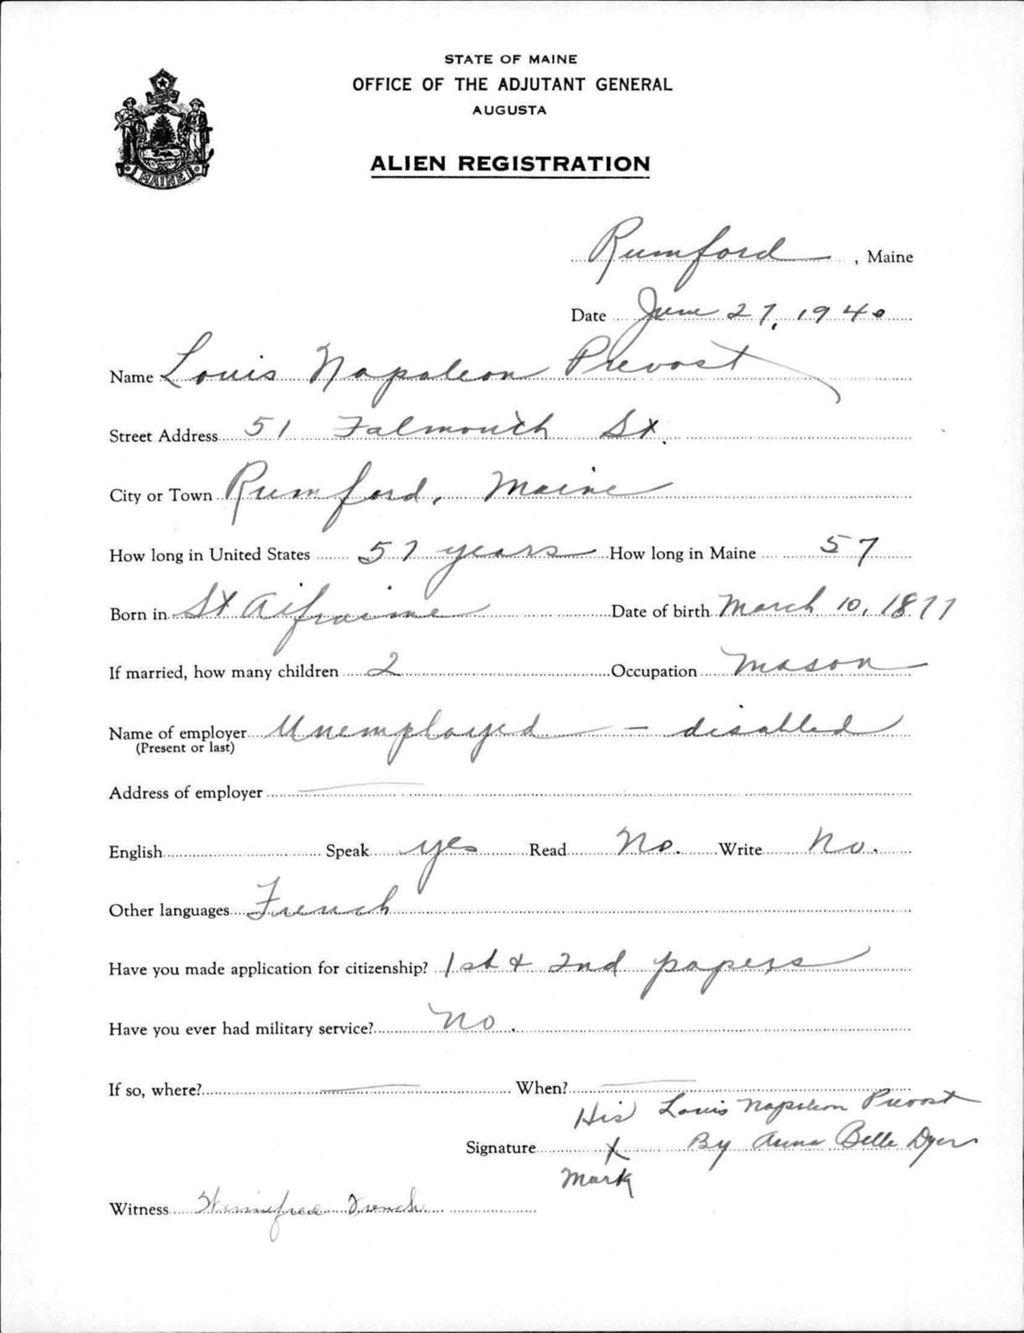 STATE OF MAINE
OFFICE OF THE ADJUTANT GENERAL
AUGUSTA
MAINE
ALIEN REGISTRATION
Rumford, Maine
Date June 27, 1940
Name Louis Napoleon Prevost
Street Address 51 Falmouth St.
City or Town Rumford, Maine
How long in United States 57 years How long in Maine 57
Born in St Aifraime Date of birth March 10, 1877
If married, how many children 2 Occupation Mason
Name of employer Unemployed - disabled
(Present or last)
Address of employer
English Speak yes Read No. Write No.
Other languages French
Have you made application for citizenship? 1st & 2nd papers
Have you ever had military service? No.
If so, where? When?
His Louis Napoleon Prevost
Signature X By Anna Belle Dyer
Mark
Witness Winnifred French